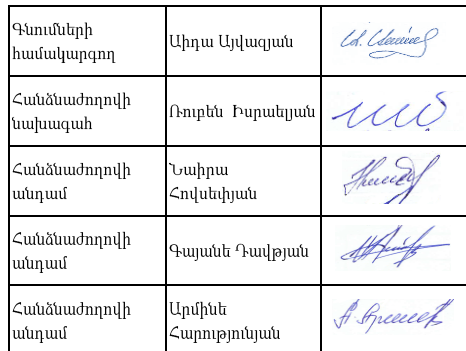 Գնումների
համակարգող
Աիդա Այվազյան
Հանձնաժողովի
նախագահ
Ռուբեն Իսրաելյան
Հանձնաժողովի
անդամ
Նաիրա
Հովսեփյան
Հանձնաժողովի
անդամ
Գայանե Դավթյան
Հանձնաժողովի
անդամ
Արմինե
Հարությունյան